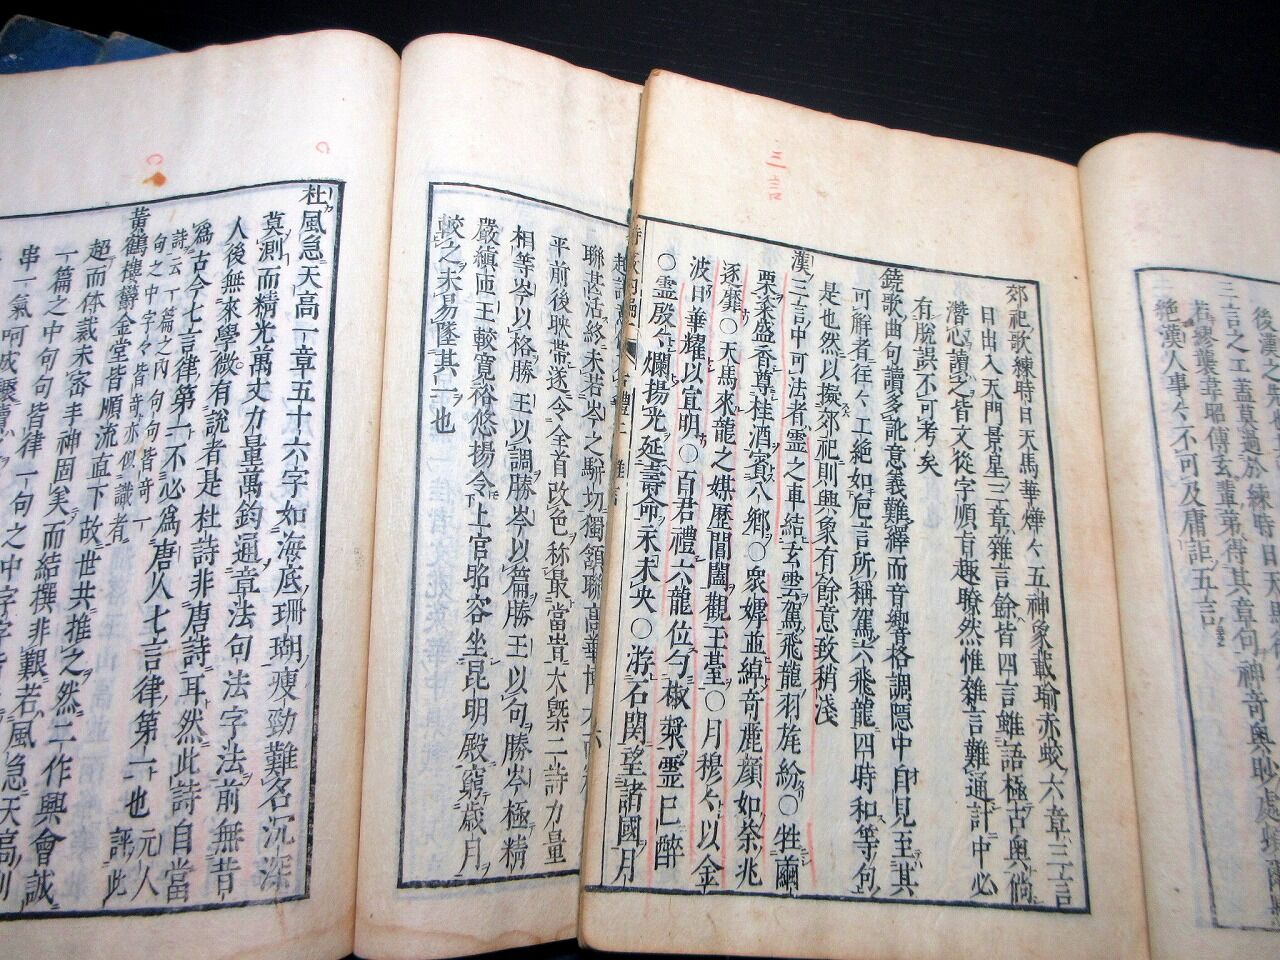 三言
後漢之
三言之工蓋莫過於練時日天馬
若繆襲韋昭傅玄輩弟得其章句神奇奧眇處
絶漢人事々不可及庸詎五言
郊祀歌練時日天馬華燁々五神象載瑜赤蛟六章三言
日出入天門景星三章雜言餘皆四言雖語極古奧倘
潛心讀之皆文從字順旨趣瞭然惟雜言難通計中必
有脱誤不可考矣
鐃歌曲句讀多訛意義難繹而音響格調隱中自見至其
可解者往々工絶如巵言所稱駕六飛龍四時和等句
是也然以擬郊祀則興象有餘意致稍淺
漢三言中可法者靈之車結玄雲駕飛龍羽旄紛○牲繭
栗粢盛香尊桂酒賓八鄉○衆嫭並綽奇麗顔如荼兆
逐靡○天馬來龍之媒歴閶闔觀玉臺○月穆々以金
波日華耀以宜明○百君禮六龍位勺椒漿靈已醉
○靈殷々爛揚光延壽命永未央○游石關望諸國月
聯甚活終未若岑之駢切獨頷聯高華博大
平前後映帶遂令全首改色称最當旹大槩二詩力量
相等岑以格勝王以調勝岑以篇勝王以句勝岑極精
嚴縝匝王較寬裕悠揚令上官昭容坐昆明殿窮歳月
較之未易墜其一也
杜風急天高一章五十六字如海底珊瑚瘦勁難名沉深
莫測而精光萬丈力量萬鈞通章法句法字法前無昔
人後無來學微有説者是杜詩非唐詩耳然此詩自當
爲古今七言律第一不必爲唐人七言律第一也元人評此
詩云一篇之内句句皆奇一
句之中字々皆奇亦似識者
黄鶴樓鬱金堂皆順流直下故世共推之然二作興會誠
超而体裁未密丰神固矣而結撰非艱若風急天高則
一篇之中句句皆律一句之中字字皆
串一氣呵成